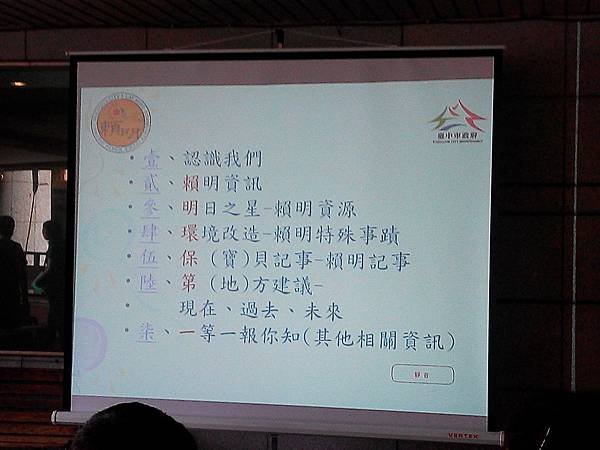 臺中市政府
• 壹、認識我們
• 貳、賴明資訊
• 參、明日之星-賴明資源
• 肆、環境改造-賴明特殊事蹟
• 伍、保(寶)貝記事-賴明記事
• 陸、第(地)方建議-
• 現在、過去、未來
• 柒、一等一報你知(其他相關資訊)
VERTEX